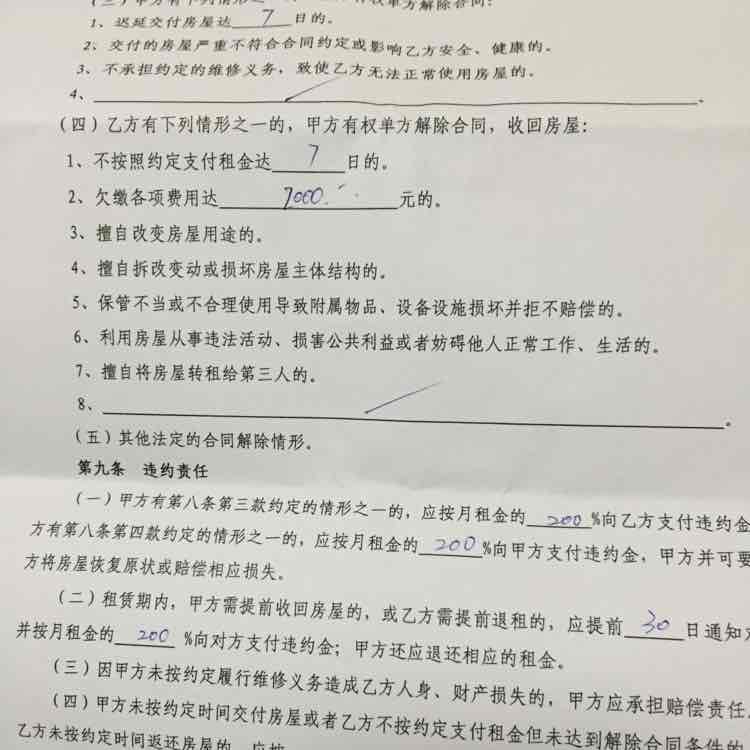 1、迟延交付房屋达 7 日的。
2、交付的房屋严重不符合合同约定或影响乙方安全、健康的。
3、不承担约定的维修义务，致使乙方无法正常使用房屋的。
4、。
(四)乙方有下列情形之一的，甲方有权单方解除合同，收回房屋：
1、不按照约定支付租金达 7 日的。
2、欠缴各项费用达 元的。
3、擅自改变房屋用途的。
4、擅自拆改变动或损坏房屋主体结构的。
5、保管不当或不合理使用导致附属物品、设备设施损坏并拒不赔偿的。
6、利用房屋从事违法活动、损害公共利益或者妨碍他人正常工作、生活的。
7、擅自将房屋转租给第三人的。
8、。
(五)其他法定的合同解除情形。
第九条 违约责任
(一)甲方有第八条第三款约定的情形之一的，应按月租金的 200 %向乙方支付违约金
方有第八条第四款约定的情形之一的，应按月租金的 200 %向甲方支付违约金，甲方并可要
方将房屋恢复原状或赔偿相应损失。
(二)租赁期内，甲方需提前收回房屋的，或乙方需提前退租的，应提前 30 日通知
并按月租金的 200 %向对方支付违约金；甲方还应退还相应的租金。
(三)因甲方未按约定履行维修义务造成乙方人身、财产损失的，甲方应承担赔偿责任。
(四)甲方未按约定时间交付房屋或者乙方不按约定支付租金但未达到解除合同条件的
乙方未按约定时间返还房屋的，应按